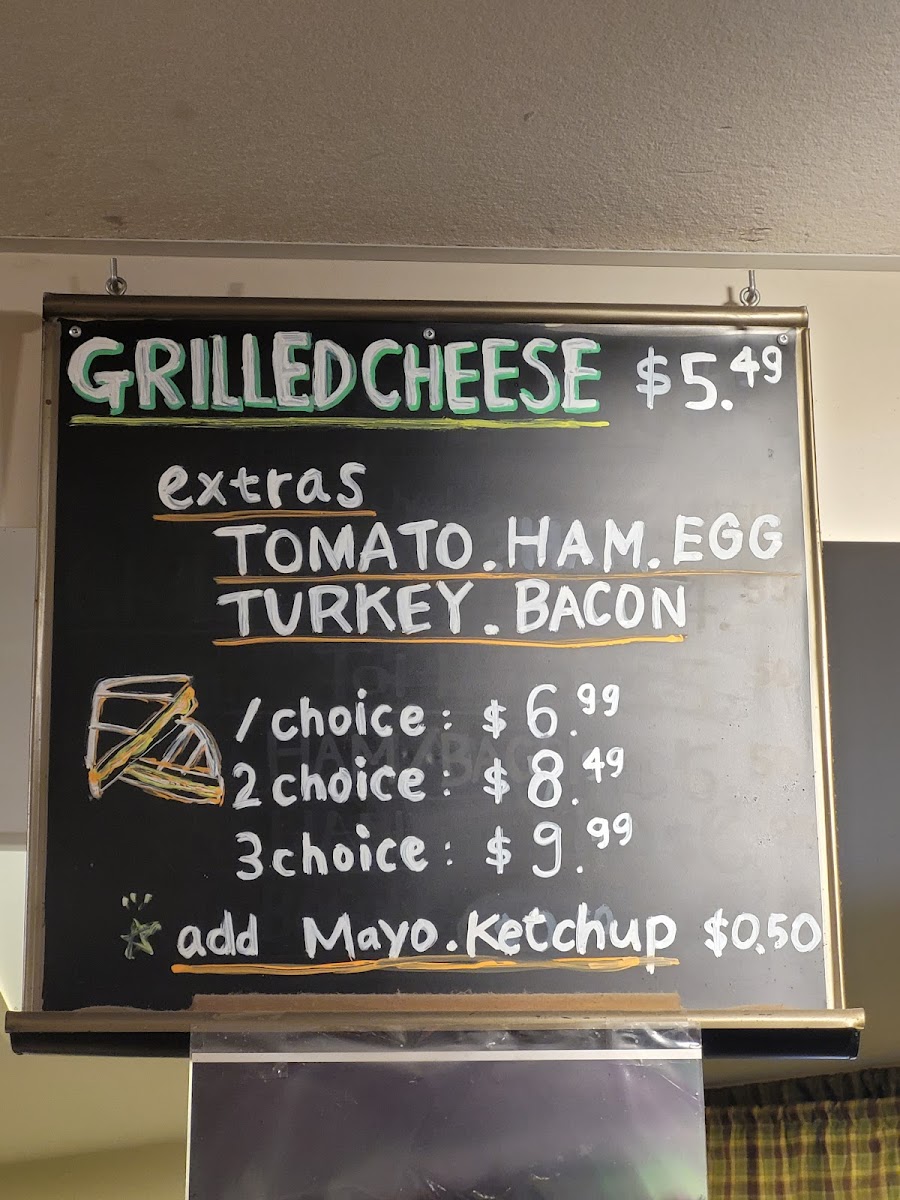 GRILLED CHEESE $5.49
extras
TOMATO.HAM.EGG
TURKEY.BACON
1 choice: $6.99
2 choice: $8.49
3 choice: $9.99
add Mayo.Ketchup $0.50